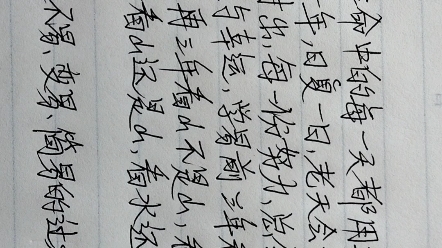 命中的每一天都用
年,日复一日老天会
出,每一份努力,总
与幸运,学易前三年
再三年看山不是山,
看山还是山,看水还
不易、变易、简易的过